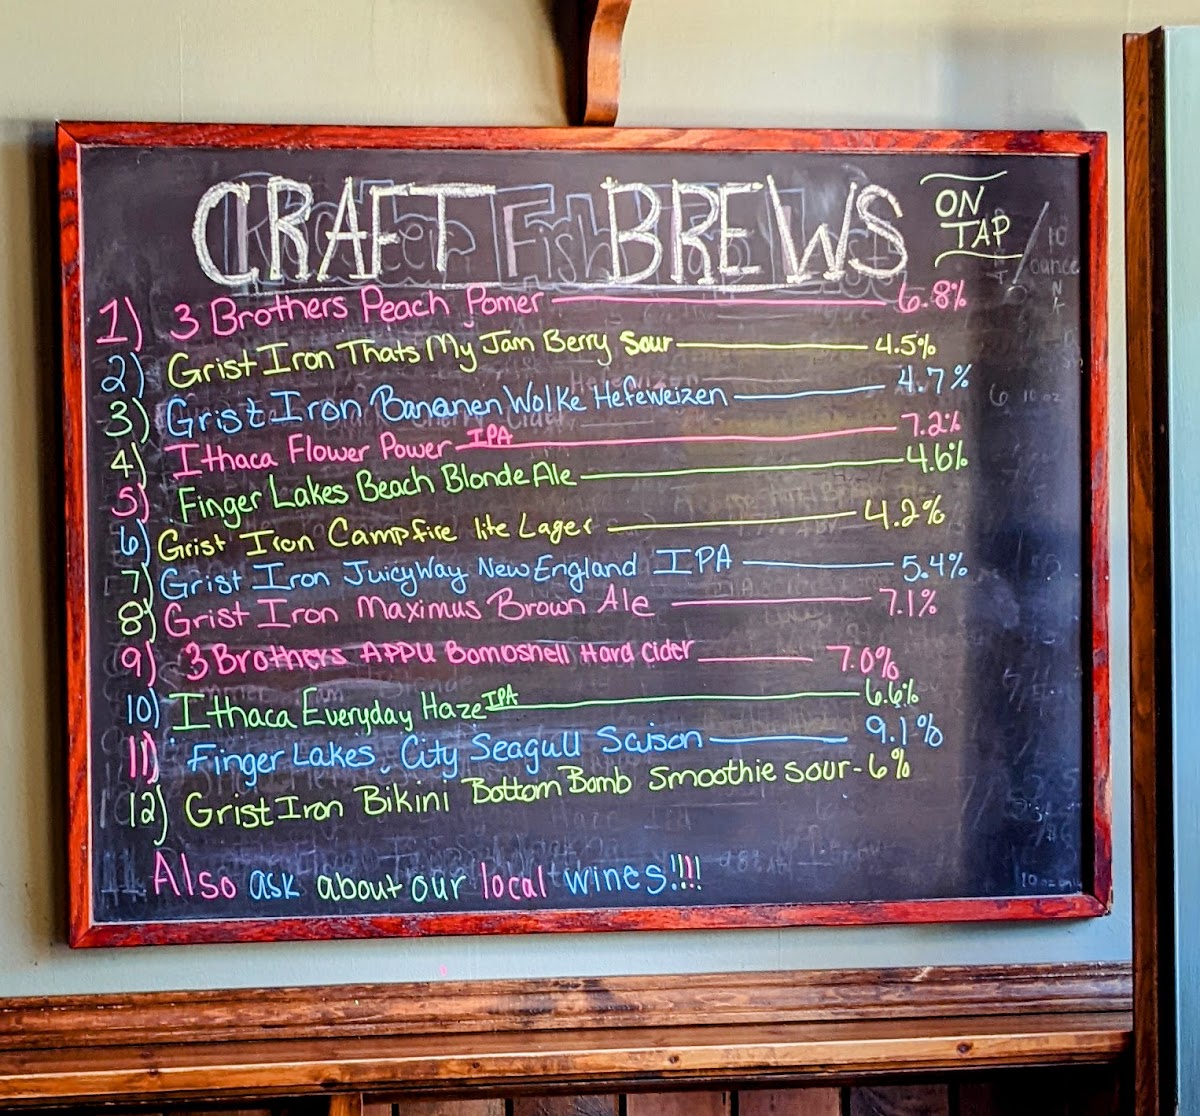 CRAFT BREWS
ON
TAP
1) 3 Brothers Peach Pomer 6.8%
2) Grist Iron Thats My Jam Berry Sour 4.5%
3) Grist Iron Bananen Wolke Hefeweizen 4.7%
4) Ithaca Flower Power IPA 7.2%
5) Finger Lakes Beach Blonde Ale 4.6%
6) Grist Iron Campfire lite Lager 4.2%
7) Grist Iron Juicy Way New England IPA 5.4%
8) Grist Iron Maximus Brown Ale 7.1%
9) 3 Brothers APPU Bombshell Hard Cider 7.0%
10) Ithaca Everyday Haze IPA 6.6%
11) Finger Lakes City Seagull Saison 9.1%
12) Grist Iron Bikini Bottom Bomb Smoothie Sour - 6%
Also ask about our local wines!!!!